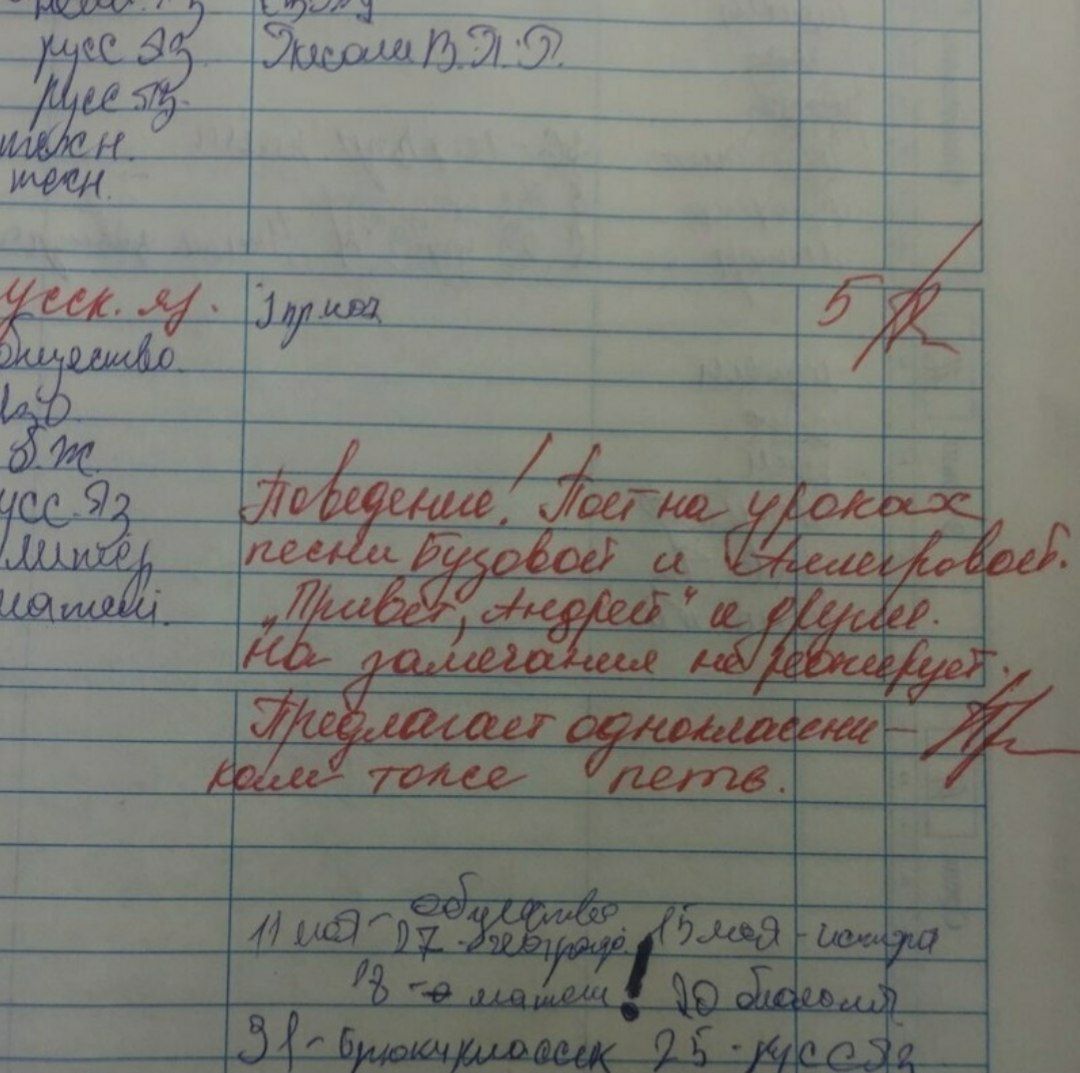 русс яз. Писали В.П.Г.
русс яз.
техн.
техн.
усск. яз. 5
общество.
изо
бж
усс. яз Поведение! Поёт на уроках
литер песни Бузовой и Аллегровой.
матем. "Привет, Андрей" и другие.
На замечания не реагирует.
Предлагает одноклассни-
кам тоже петь.
общество
11 мая- 27 - географ. 15 мая - истори
18 - матем! 20 биологи
31 - 25 - русс яз